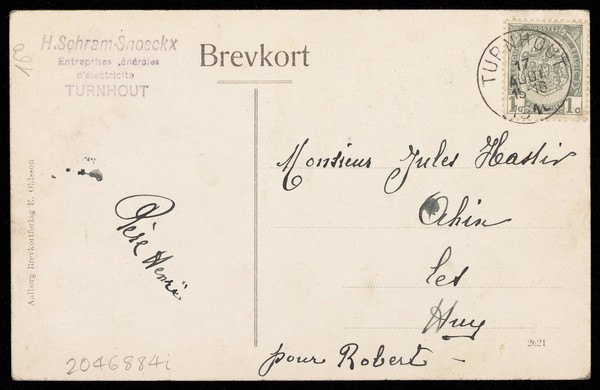 160
H. Schram-Snoeckx
Entreprises générales
d'électricité
TURNHOUT
Brevkort
TURNHOUT
17
AOUT
15-16
1c 1c
Monsieur Jules Hastir
Ahin
Lez
Huy
pour Robert -
Père Henri
Aalborg Brevkortforlag E. Ohlsson
2621
2046884i